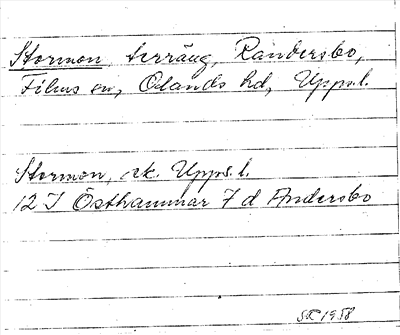 Stormon, terräng, Randersbo,
Films sn, Olands hd, Upps.l.
Stormon, ek. Upps.l.
12 I Östhammar 7 d Andersbo
1958